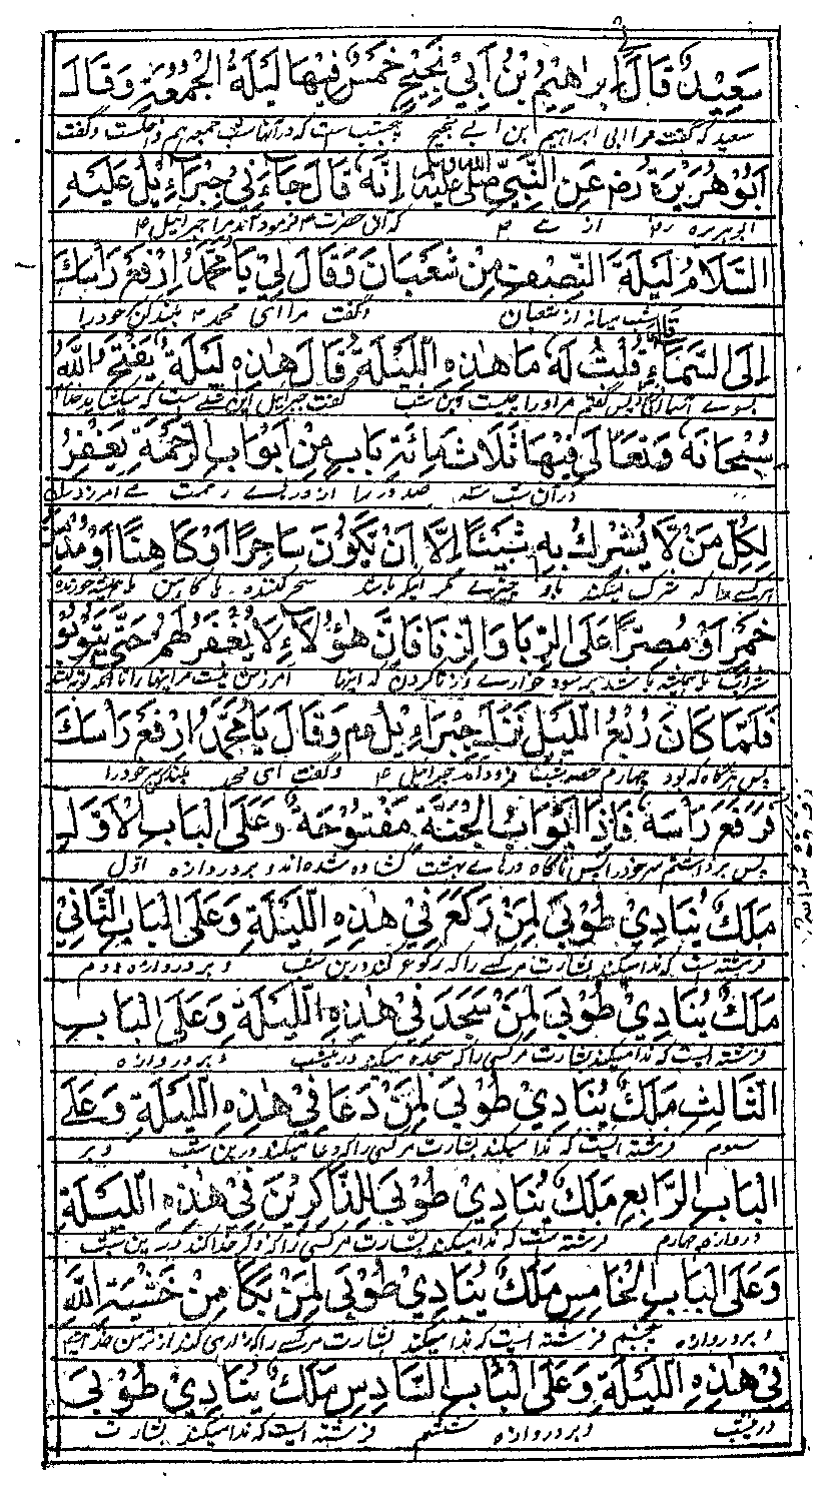 سَعِيدٌ قَالَ اِبْرَاهِيْمُ بْنُ اَبِيْ نَجِيْحٍ خَمْسٌ فِيْهَا لَيْلَةُ الْجُمُعَةِ وَقَالَ
سعید که گفت مرا ابی ابراهیم ابن ابے نجیح پنجشب ست که در آنها شب جمعه هم وگفت
اَبُوْ هُرَيْرَةَ رَضِ عَنِ النَّبِيِّ صَلَّى اللهُ عَلَيْهِ وَسَلَّمَ اِنَّهٗ قَالَ جَاءَنِيْ جِبْرَاءِيْلُ عَلَيْهِ
ابوهریره رض از نبے که آن حضرت فرمود آمد مرا جبرائیل ۴
السَّلَامُ لَيْلَةَ النِّصْفِ مِنْ شَعْبَانَ وَقَالَ لِيْ يَا مُحَمَّدُ اِرْفَعْ رَأْسَكَ
شب میانه از شعبان وگفت مرا ای محمد بلند کن خود را
اِلَى السَّمَاءِ قُلْتُ لَهٗ مَا هٰذِهِ اللَّيْلَةُ قَالَ هٰذِهٖ لَيْلَةٌ يَفْتَحُ اللهُ
بسوے آسمان پس گفتم مر او را چیست این شب گفت جبرائیل این شبے ست که میکشاید خدا
سُبْحَانَهٗ وَتَعَالٰى فِيْهَا ثَلَاثَ مِائَةِ بَابٍ مِنْ اَبْوَابِ الرَّحْمَةِ يَغْفِرُ
در آن شب سه صد در را از درهاے رحمت مے آمرزد
لِكُلِّ مَنْ لَّا يُشْرِكُ بِهٖ شَيْئًا اِلَّا اَنْ يَّكُوْنَ سَاحِرًا اَوْ كَاهِنًا اَوْ مُدْمِنَ
که شرک نمیکند باو چیزے مگر اینکه باشد سحر کننده یا کاهن یا همیشه خورنده
خَمْرٍ اَوْ مُصِرًّا عَلَى الرِّبَا وَالزِّنَا فَاِنَّ هٰؤُلَاءِ لَا يُغْفَرُ لَهُمْ حَتّٰى يَتُوْبُوْا
شراب یا همیشه باشد بر سود خوارے و زنا کردن که اینها آمرزش نیست مر اینها را تا آنکه توبه کنند
فَلَمَّا كَانَ رُبُعُ اللَّيْلِ نَزَلَ جِبْرَاءِيْلُ ۴م وَقَالَ يَا مُحَمَّدُ اِرْفَعْ رَأْسَكَ
پس هرگاه که بود چهارم حصه شب فرود آمد جبرائیل ۴ وگفت ای محمد بلند کن سر خود را
فَرَفَعَ رَأْسَهٗ فَاِذَا اَبْوَابُ الْجَنَّةِ مَفْتُوْحَةٌ وَعَلَى الْبَابِ الْاَوَّلِ
پس برداشتم سر خود را پس ناگاه درهاے بهشت کشاده شده اند و بر دروازه اوّل
مَلَكٌ يُنَادِيْ طُوْبٰى لِمَنْ رَكَعَ فِيْ هٰذِهِ اللَّيْلَةِ وَعَلَى الْبَابِ الثَّانِيْ
فرشته ست که ندا میکند بشارت مر کسے را که رکوع کند درین شب و بر دروازه دوم
مَلَكٌ يُنَادِيْ طُوْبٰى لِمَنْ سَجَدَ فِيْ هٰذِهِ اللَّيْلَةِ وَعَلَى الْبَابِ
فرشته ایست که ندا میکند بشارت مر کسی را که سجده میکند درینشب و بر دروازه
الثَّالِثِ مَلَكٌ يُنَادِيْ طُوْبٰى لِمَنْ دَعَا فِيْ هٰذِهِ اللَّيْلَةِ وَعَلَى
سوم فرشته ایست که ندا میکند بشارت مر کسی را که دعا میکند درین شب و بر
الْبَابِ الرَّابِعِ مَلَكٌ يُنَادِيْ طُوْبٰى لِلذَّاكِرِيْنَ فِيْ هٰذِهِ اللَّيْلَةِ
دروازه چهارم فرشته ست که ندا میکند بشارت مر کسی را که ذکر خدا کند درین شب
وَعَلَى الْبَابِ الْخَامِسِ مَلَكٌ يُنَادِيْ طُوْبٰى لِمَنْ بَكَا مِنْ خَشْيَةِ اللهِ
و بر دروازه پنجم فرشته ایست که ندا میکند بشارت مر کسے را که زاری کند از ترس خدا
فِيْ هٰذِهِ اللَّيْلَةِ وَعَلَى الْبَابِ السَّادِسِ مَلَكٌ يُنَادِيْ طُوْبٰى
درینشب و بر دروازه ششم فرشته ایست که ندا میکند بشارت